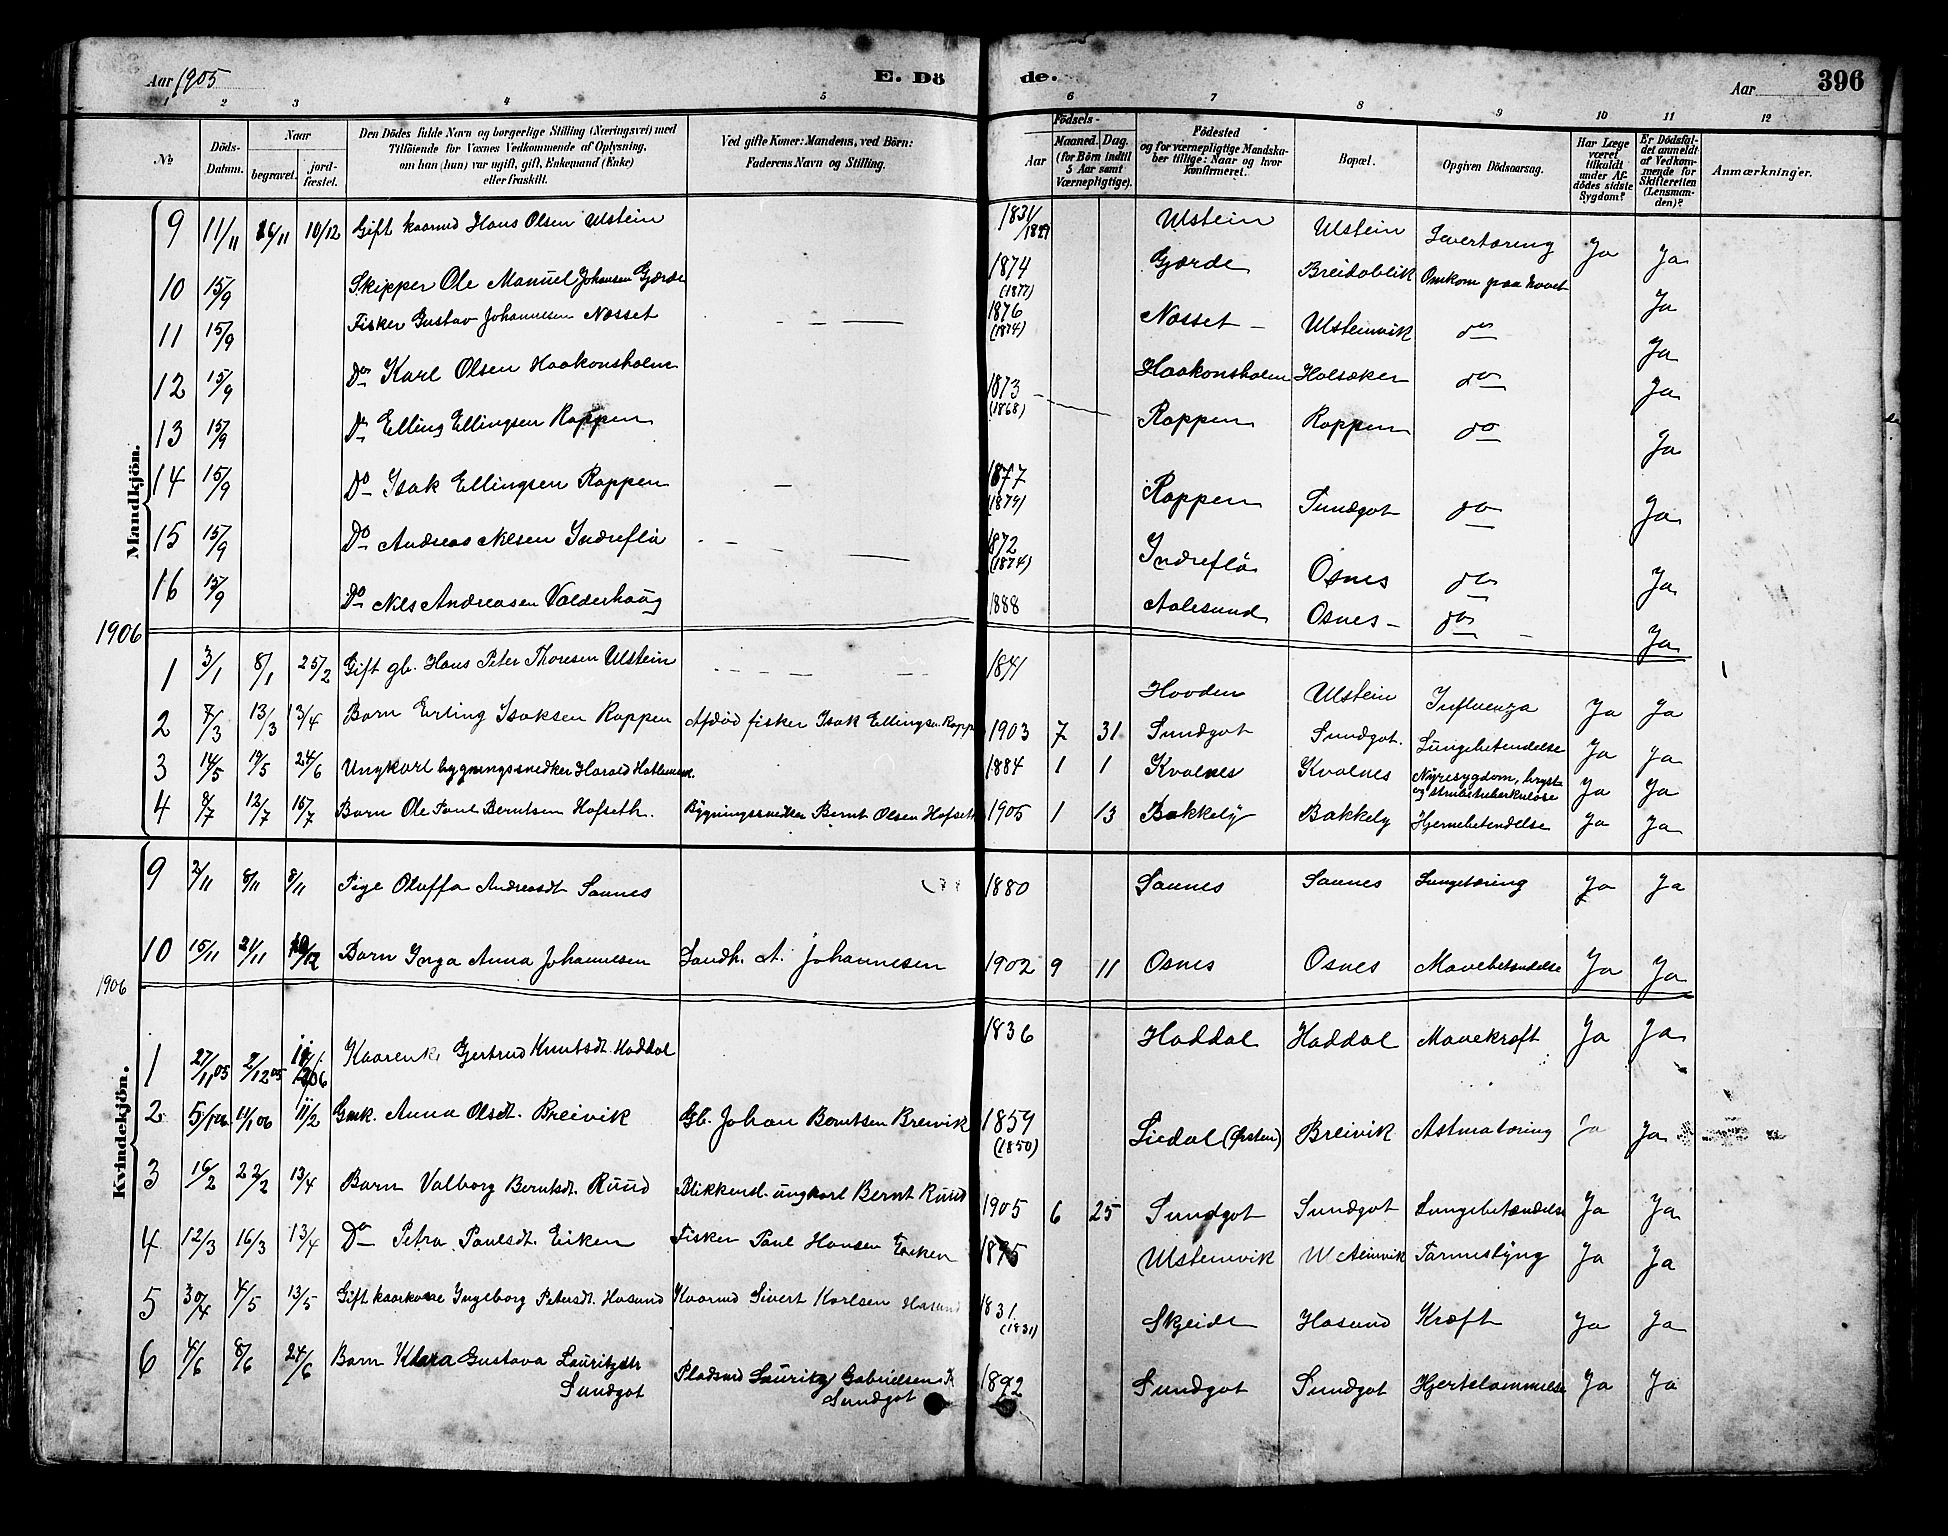 Aar 1905
E. Dö de.
Aar
396
1 2 3 4 5 6 7 8 9 10 11 12
№
Döds-Datum.
Naar
begravet.
jord-fæstet.
Den Dödes fulde Navn og borgerlige Stilling (Næringsvei) med
Tilföiende for Voxnes Vedkommende af Oplysning,
om han (hun) var ugift, gift, Enkemand (Enke)
eller fraskilt.
Ved gifte Koner: Mandens, ved Börn:
Faderens Navn og Stilling.
Födsels-
Aar
Maaned. Dag.
(for Börn indtil
5 Aar samt
Værnepligtige).
Födested
og for værnepligtige Mandska-
ber tillige: Naar og hvor
konfirmeret.
Bopæl.
Opgiven Dödsaarsag.
Har Læge
været
tilkaldt
under Af-
dödes sidste
Sygdom?
Er Dödsfal-
det anmeldt
af Vedkom-
mende for
Skifteretten
(Lensman-
den)?
Anmærkninger.
Mandkjön.
9 11/11 16/11 10/12 Gift kaarmd Hans Olsen Ulstein 1831/1827 Ulstein Ulstein Levertæring Ja Ja
10 15/9 Skipper Ole Manuel Johansen Gjærde 1874 (1877) Gjærde Breidablik Omkom paa havet Ja
11 15/9 Fisker Gustav Johannesen Næsset 1876 (1874) Næsset Ulsteinvik do Ja
12 15/9 Do Karl Olsen Haakonsholm 1873 (1868) Haakonsholm Holsæker do Ja
13 15/9 Do Elling Ellingsen Røppen Røppen Røppen do Ja
14 15/9 Do Isak Ellingsen Røppen 1877 (1879) Røppen Sundgot do Ja
15 15/9 Do Andreas Nilsen Indreflø 1872 (1874) Indreflø Osnes do Ja
16 15/9 Do Nils Andreasen Valderhaug 1888 Aalesund Osnes do Ja
1906
1 3/1 8/1 25/2 Gift gb. Hans Peter Thoresen Ulstein 1841 Hovden Ulstein Influenza Ja Ja
2 7/3 13/3 13/4 Barn Erling Isaksen Røppen Afdød fisker Isak Ellingsen Røppen 1903 7 31 Sundgot Sundgot. Lungebetendelse Ja Ja
3 14/5 19/5 24/6 Ungkarl bygningssnedker Harald 1884 1 1 Kvalnes Kvalnes Nyresygdom, bryst
og strubetuberkuløse Ja Ja
4 8/7 12/7 15/7 Barn Ole Paul Berntsen Hofseth. Bygningssnedker Bernt Olsen Hofseth 1905 1 13 Bakkely Bakkely Hjernebetendelse Ja Ja
Kvindekjön.
9 2/11 8/11 8/11 Pige Oluffa Andreasdt Saunes 1880 Saunes Saunes Lungetæring Ja Ja
10 15/11 21/11 10/12 Barn Inga Anna Johannesen Landh. A. Johannesen 1902 9 11 Osnes Osnes Mavebetændelse Ja Ja
1906
1 27/11 05 2/12 05 Kaarenk. Gertrud Knutsdt. Haddal 1836 Haddal Haddal Mavekræft Ja Ja
2 5/1 06 11/1 06 11/2 Gmk. Anna Olsdt. Breivik Gb. Johan Berntsen Breivik 1859 (1850) Liedal (Ørsten) Breivik Astmatæring Ja Ja
3 16/2 22/2 13/4 Barn Valborg Berntsdt. Ruud Blikkensl. ungkarl Bernt Ruud 1905 6 25 Sundgot Sundgot Lungebetændelse Ja Ja
4 12/3 16/3 13/4 Do Petra Paulsdt. Eiken Fisker Paul Hansen Eiken 1895 Ulsteinvik Ulsteinvik Tarmeslyng Ja Ja
5 30/4 4/5 13/5 Gift kaarkone Ingeborg Petersdt. Hasund Kaarmd Sivert Karlsen Hasund 1831 (1831) Skjeide Hasund Kræft Ja Ja
6 4/6 8/6 24/6 Barn Klara Gustava Lauritzdtr
Sundgot Pladsmd Lauritz Gabrielsen
Sundgot 1892 Sundgot Sundgot Hjertelammelse Ja Ja